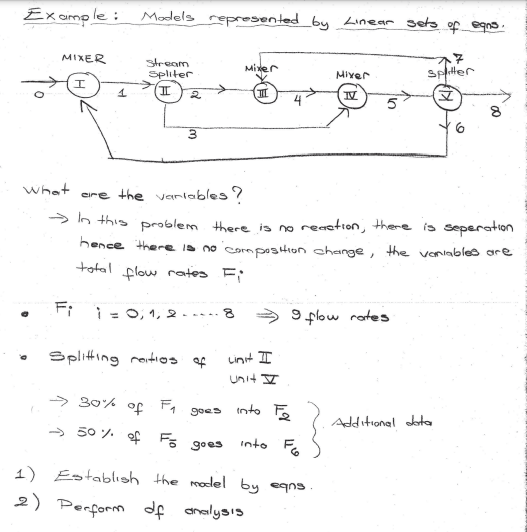 Example : Models represented by Linear sets of eqns.
7
MIXER Stream Mixer Mixer splitter
Spliter
I II III IV V
0 1 2 4 5 8
3 6
What are the variables?
→ In this problem there is no reaction, there is seperation
hence there is no composition change, the variables are
total flow rates Fi
• Fi i = 0, 1, 2 ..... 8 ⇒ 9 flow rates
• Splitting ratios of unit II
unit V
→ 30% of F1 goes into F2
Additional data
→ 50 % of F5 goes into F6
1) Establish the model by eqns.
2) Perform df analysis